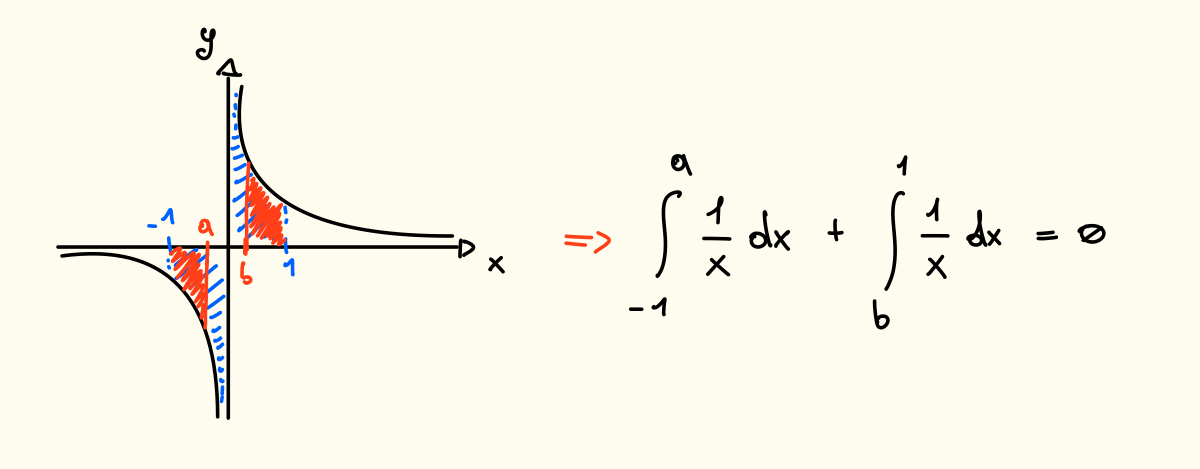 y
-1 a
b 1
x
⇒ ∫_{-1}^{a} 1/x dx + ∫_{b}^{1} 1/x dx = 0